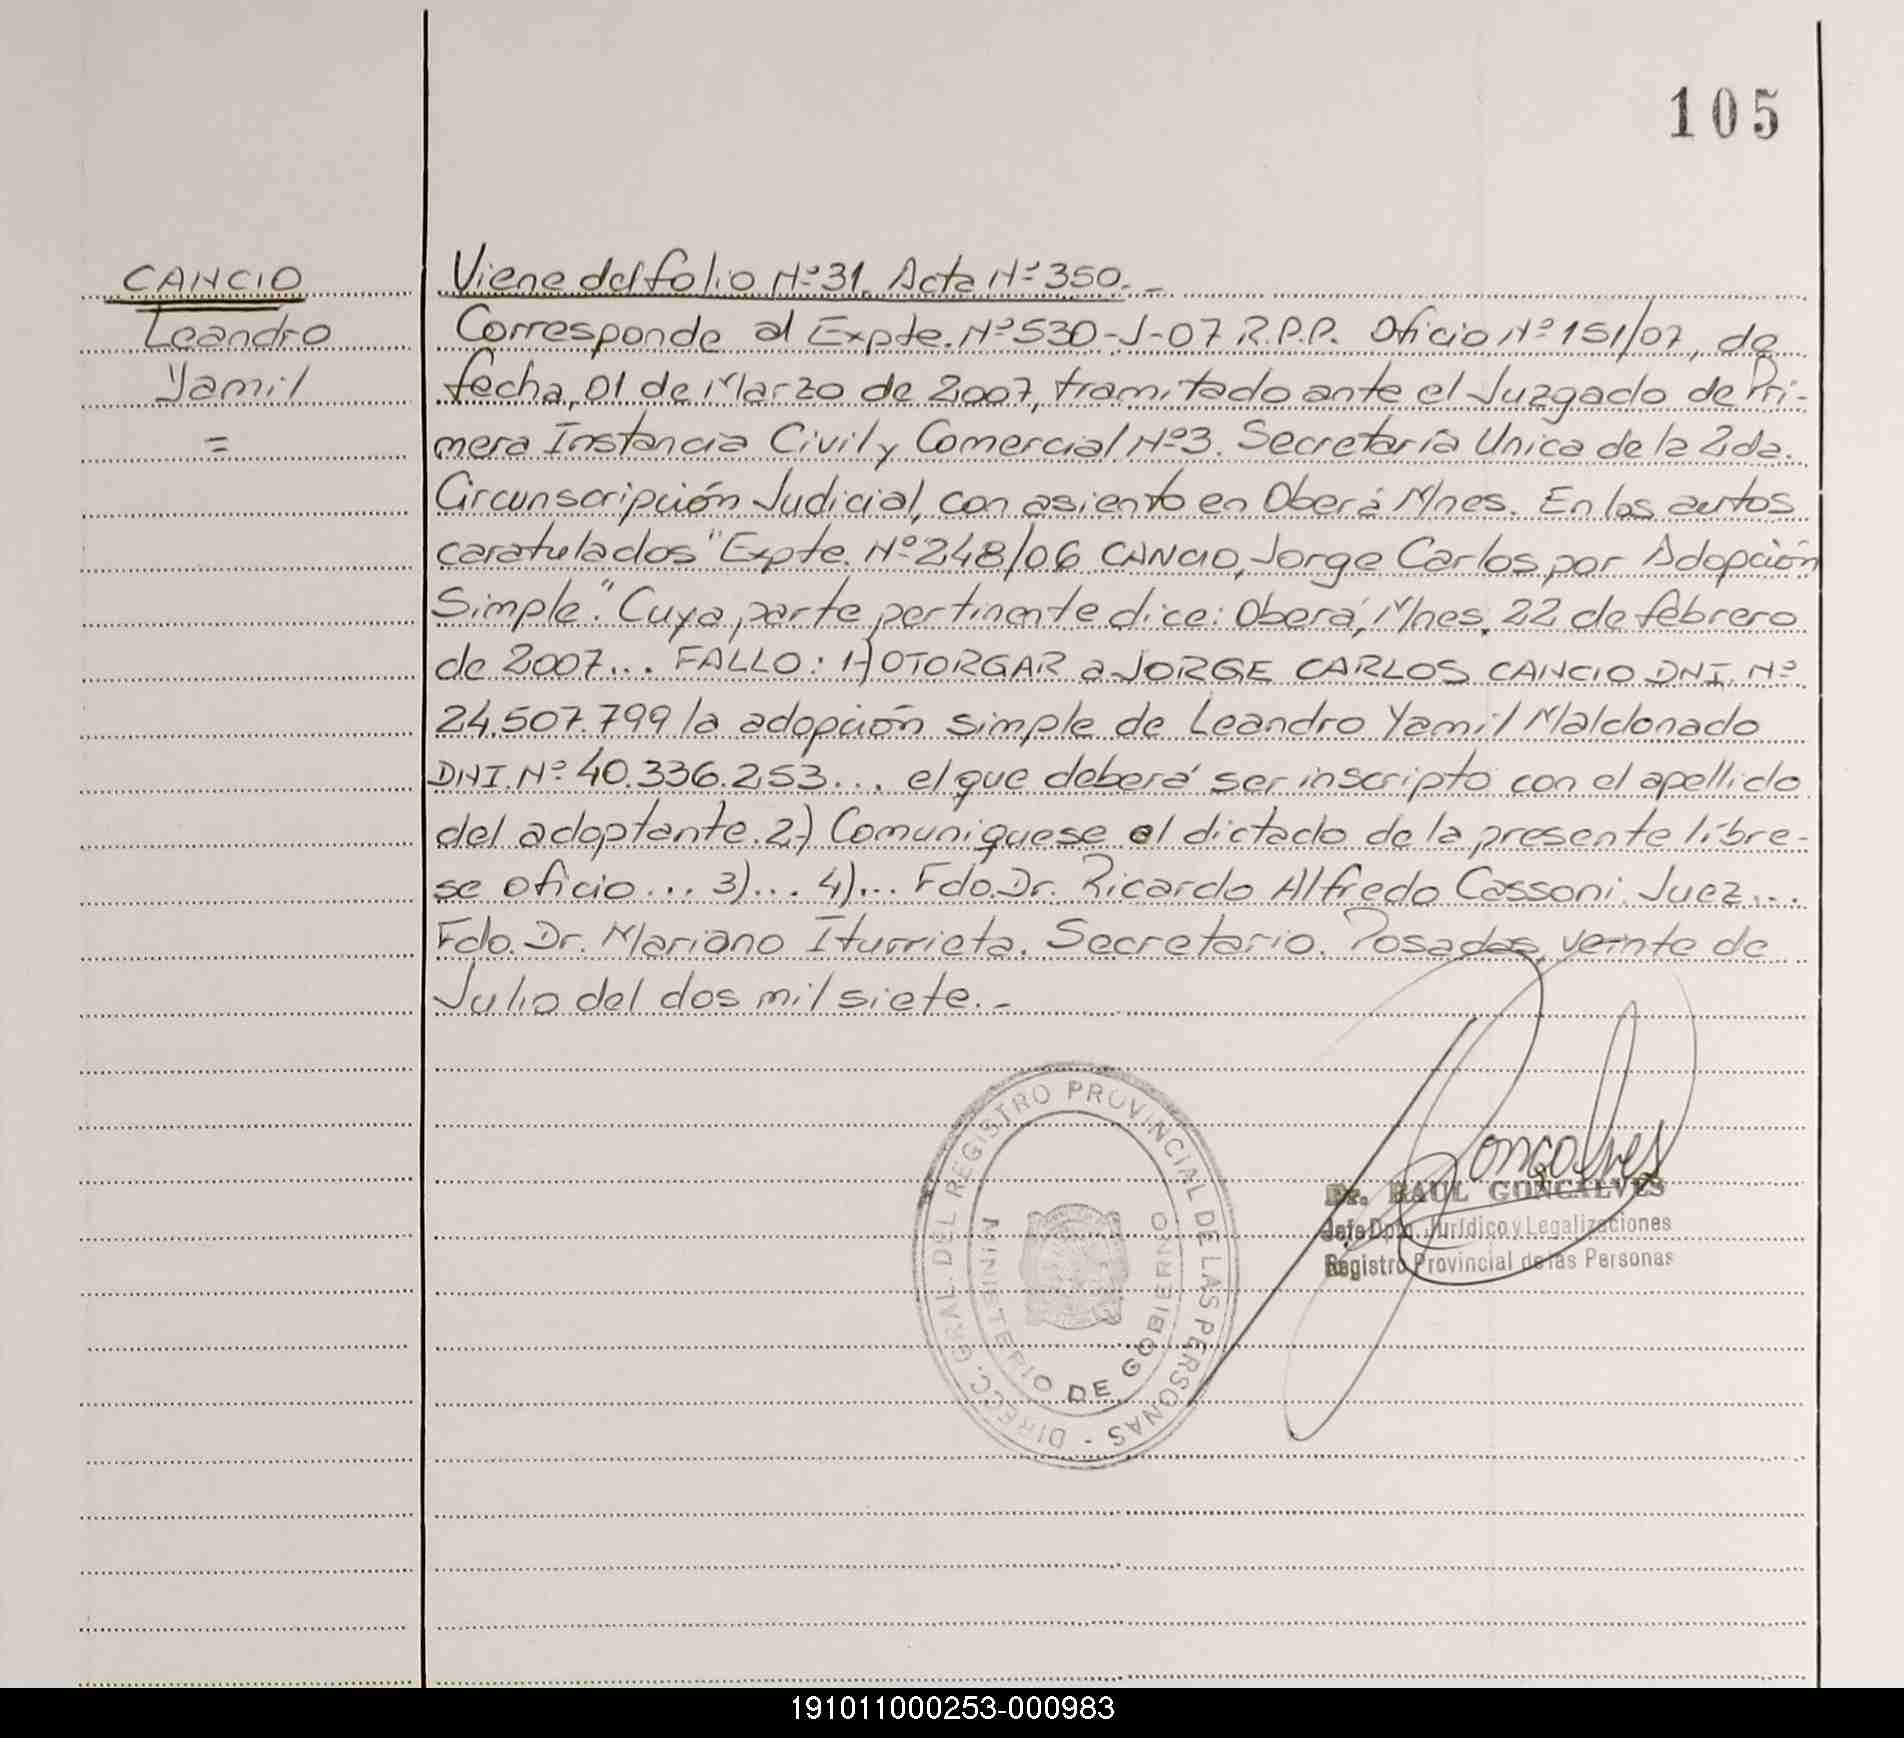 105
CANCIO
Leandro
Yamil
=
Viene del folio Nº 31. Acta Nº 350.-
Corresponde al Expte. Nº 530-J-07 R.P.P. Oficio Nº 151/07, de
fecha, 01 de Marzo de 2007, tramitado ante el Juzgado de Pri-
mera Instancia Civil y Comercial Nº 3. Secretaría Unica de la 2da.
Circunscripción Judicial, con asiento en Oberá Mnes. En los autos
caratulados "Expte. Nº 248/06 CANCIO, Jorge Carlos por Adopción
Simple". Cuya parte pertinente dice: Oberá, Mnes, 22 de febrero
de 2007... FALLO: 1-) OTORGAR a JORGE CARLOS CANCIO DNI. Nº
24.507.799 la adopción simple de Leandro Yamil Maldonado
DNI. Nº 40.336.253... el que deberá ser inscripto con el apellido
del adoptante. 2-) Comuniquese el dictado de la presente líbre-
se oficio... 3)... 4)... Fdo. Dr. Ricardo Alfredo Cassoni. Juez...
Fdo. Dr. Mariano Iturrieta. Secretario. Posadas, veinte de
Julio del dos mil siete.-
DIRECC. GRAL. DEL REGISTRO PROVINCIAL DE LAS PERSONAS -
MINISTERIO DE GOBIERNO
Goncalves
Dr. RAUL GONCALVES
Jefe Dpto. Jurídico y Legalizaciones
Registro Provincial de las Personas
191011000253-000983